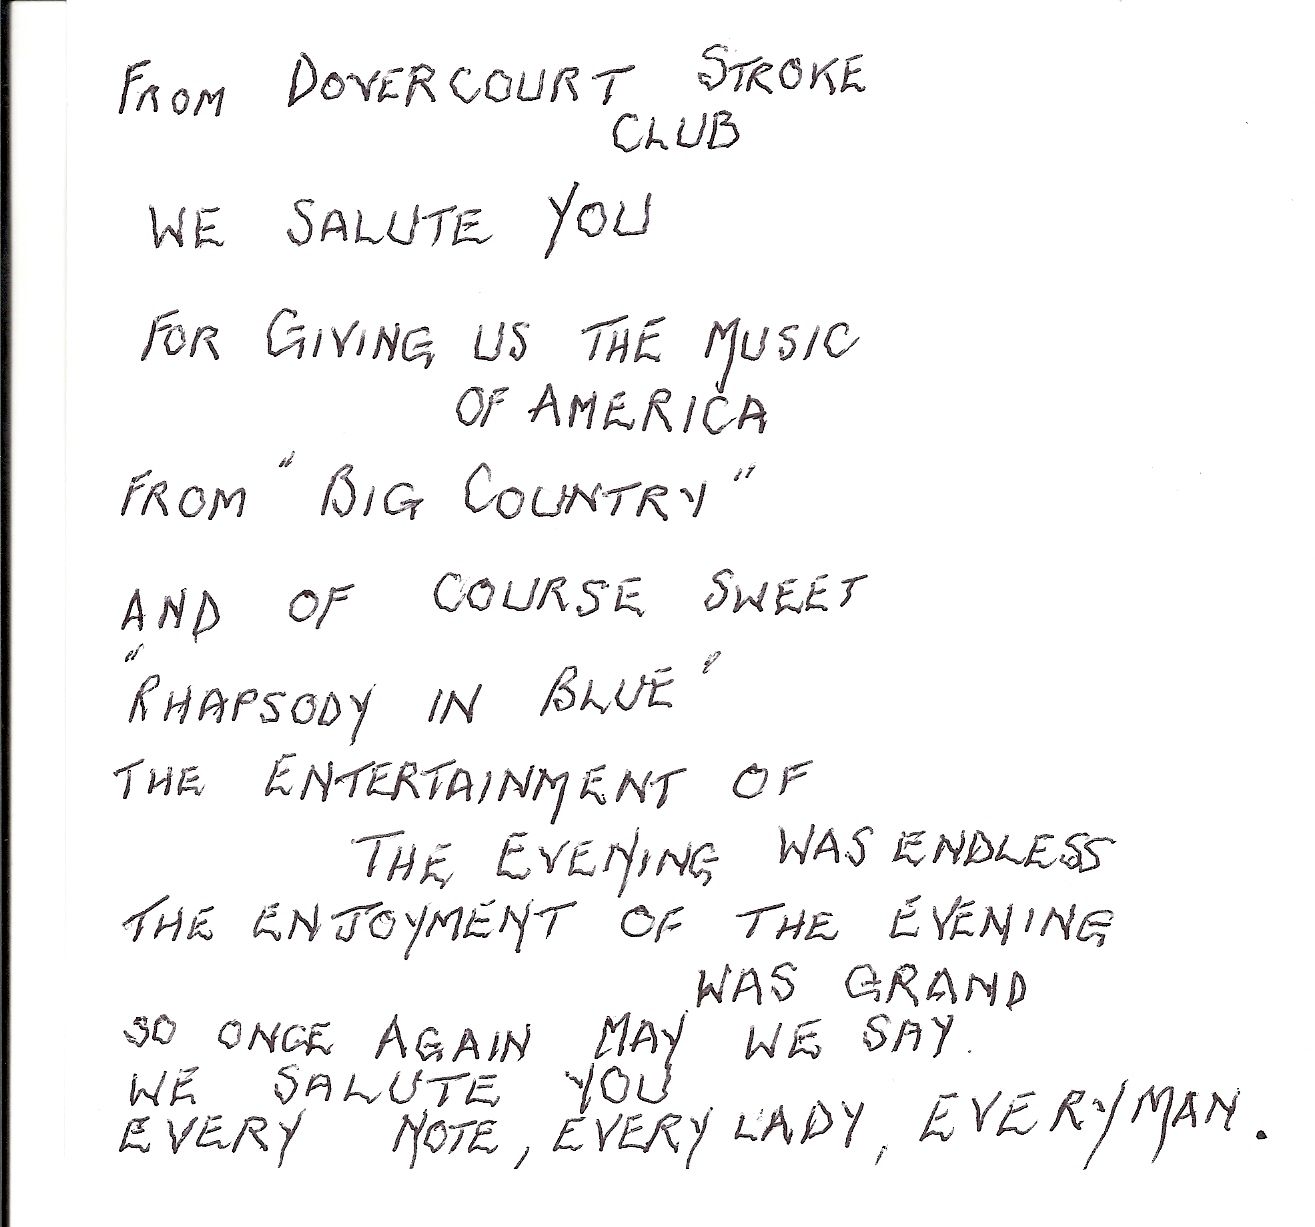 FROM DOVERCOURT STROKE
CLUB
WE SALUTE YOU
FOR GIVING US THE MUSIC
OF AMERICA
FROM "BIG COUNTRY"
AND OF COURSE SWEET
"RHAPSODY IN BLUE"
THE ENTERTAINMENT OF
THE EVENING WAS ENDLESS
THE ENJOYMENT OF THE EVENING
WAS GRAND
SO ONCE AGAIN MAY WE SAY.
WE SALUTE YOU
EVERY NOTE, EVERY LADY, EVERY MAN.